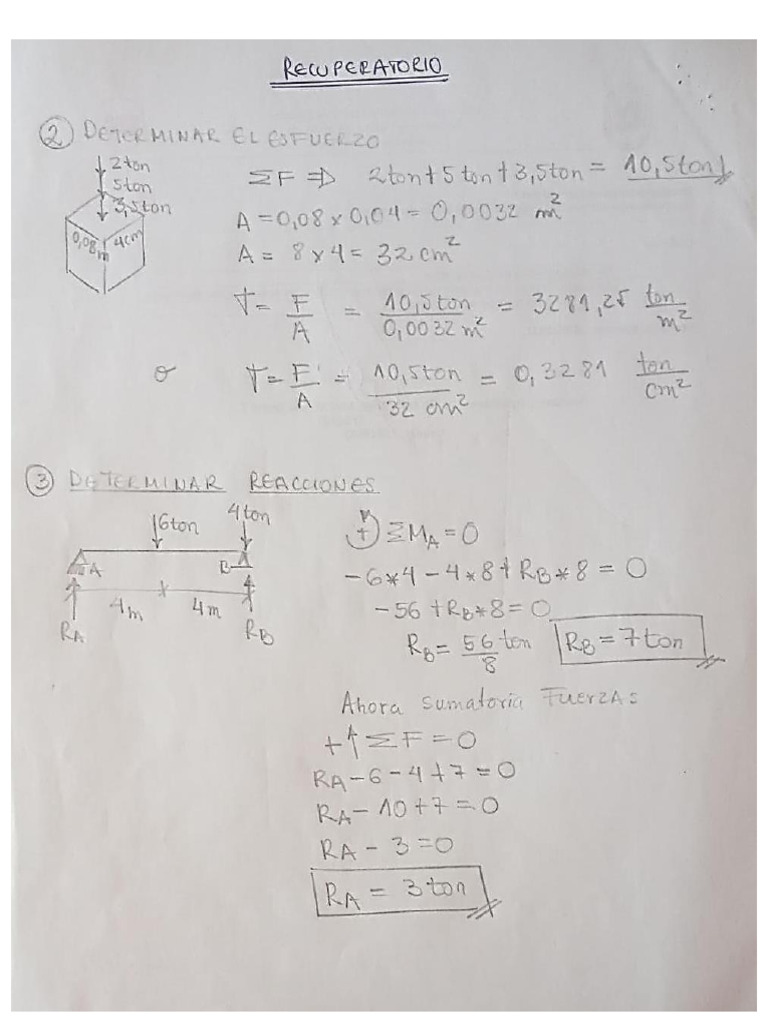 RECUPERATORIO
② DETERMINAR EL ESFUERZO
2 ton
5 ton
3,5 ton
0,08 m 4cm
ΣF ⇒ 2ton + 5 ton + 3,5ton = 10,5 ton
A = 0,08 x 0,04 = 0,0032 m²
A = 8 x 4 = 32 cm²
T = F/A = 10,5 ton / 0,0032 m² = 3281,25 ton/m²
o T = F/A = 10,5 ton / 32 cm² = 0,3281 ton/cm²
③ DETERMINAR REACCIONES
6 ton 4 ton
A B
4m 4m
RA RB
+ ΣMA = 0
-6*4 - 4*8 + RB*8 = 0
-56 + RB*8 = 0
RB = 56/8 ton RB = 7 ton
Ahora sumatoria Fuerzas
+↑ΣF = 0
RA - 6 - 4 + 7 = 0
RA - 10 + 7 = 0
RA - 3 = 0
RA = 3 ton